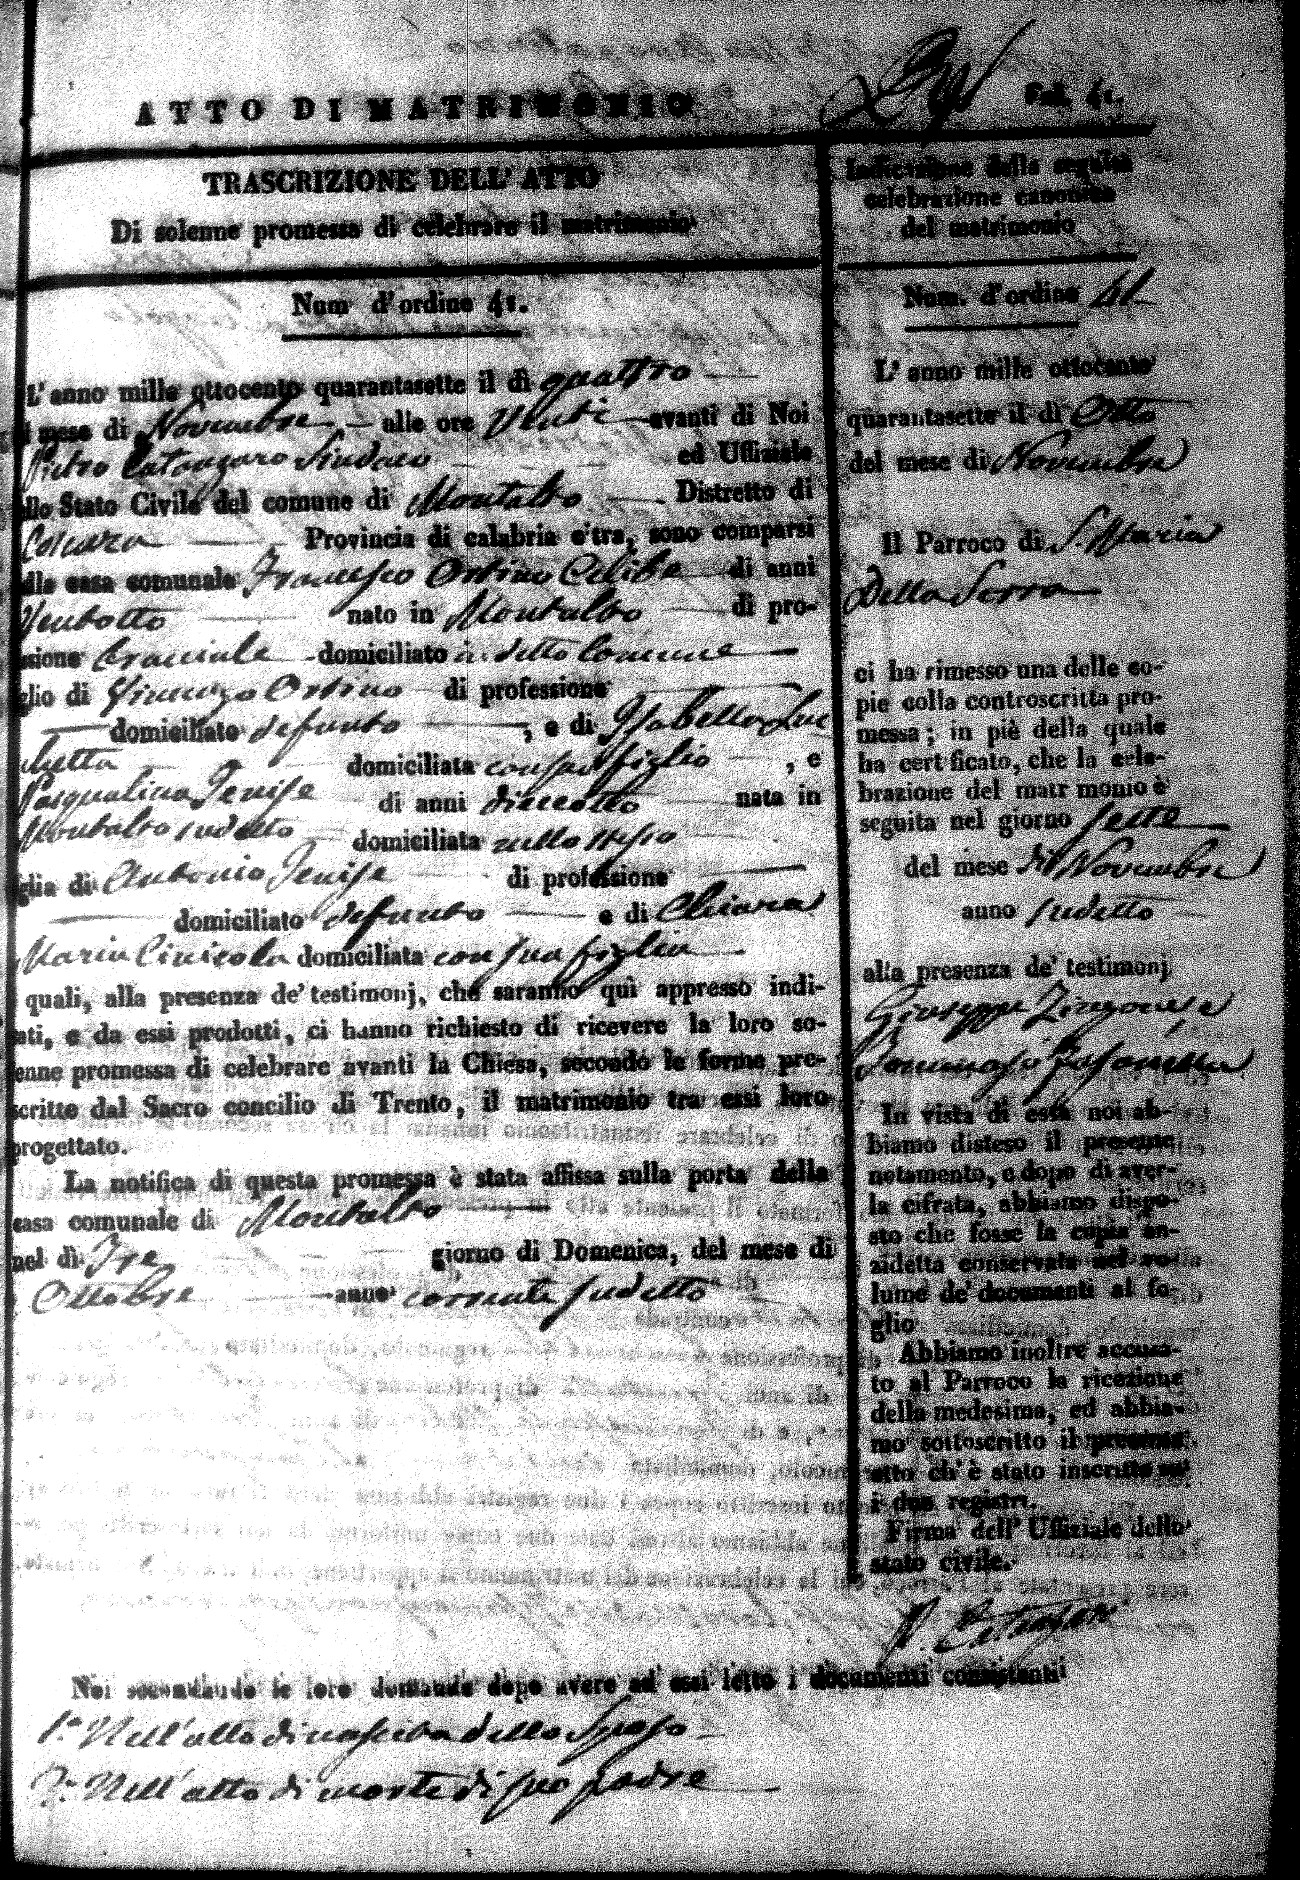 ATTO DI MATRIMONIO
Fol. 41.
TRASCRIZIONE DELL' ATTO
Di solenne promessa di celebrare il matrimonio
Num d'ordine 41.
L' anno mille ottocento quarantasette il dì quattro
mese di Novembre alle ore Venti avanti di Noi
Pietro Catanzaro Sindaco ed Uffiziale
llo Stato Civile del comune di Montalto Distretto di
Cosenza Provincia di calabria citra, sono comparsi
lla casa comunale, Francesco Ortino Celibe di anni
Ventotto nato in Montalto di pro-
ssione domiciliato in detto Comune
glio di Vincenzo Ortino di professione
domiciliato defunto , e di Isabella
domiciliata con suo figlio , e
Pasqualina Tenise di anni dieciotto nata in
Montalto sudetto domiciliata nello stesso
glia di Antonio Tenise di professione
domiciliato defunto e di Chiara
Maria domiciliata con sua figlia
quali, alla presenza de' testimonj, che saranno quì appresso indi-
ati, e da essi prodotti, ci hanno richiesto di ricevere la loro so-
enne promessa di celebrare avanti la Chiesa, secondo le forme pre-
scritte dal Sacro concilio di Trento, il matrimonio tra essi loro
progettato.
La notifica di questa promessa è stata affissa sulla porta della
casa comunale di Montalto
nel dì Tre giorno di Domenica, del mese di
Ottobre anno corrente sudetto
Indicazione della seguita
celebrazione canonica
del matrimonio
Num. d'ordine 41
L' anno mille ottocento
quarantasette il dì Otto
del mese di Novembre
Il Parroco di S. Maria
Della Serra
ci ha rimesso una delle co-
pie colla controscritta pro-
messa; in piè della quale
ha cert ficato, che la cele-
brazione del matr monio è
seguita nel giorno sette
del mese di Novembre
anno sudetto
alla presenza de' testimonj
Giuseppe
Tommaso
In vista di essa noi ab-
biamo disteso il presente
notamento, e dopo di aver-
la cifrata, abbiamo dispo-
sto che fosse la copia an-
zidetta conservata nel vo-
lume de' documenti al fo-
glio
Abbiamo inoltre accusa-
to al Parroco la ricezione
della medesima, ed abbia-
mo sottoscritto il presente
atto ch' è stato inscritto su'
i due registri.
Firma dell' Uffiziale dello
stato civile.
P. Catanzaro
Noi secondando le loro domande dopo avere ad essi letto i documenti consistenti
1.° Nell'atto di nascita dello Sposo
2.° Nell'atto di morte di suo padre